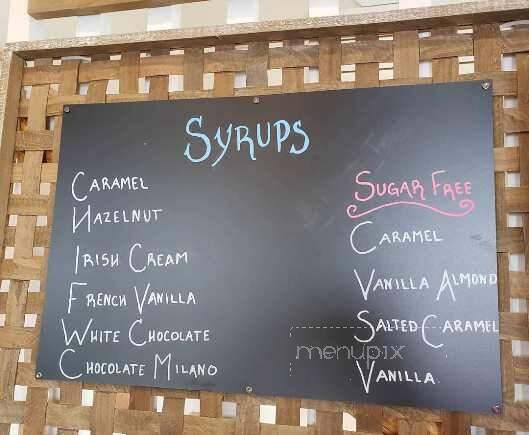 SYRUPS
CARAMEL
HAZELNUT
IRISH CREAM
FRENCH VANILLA
WHITE CHOCOLATE
CHOCOLATE MILANO
SUGAR FREE
CARAMEL
VANILLA ALMOND
SALTED CARAMEL
menupix
VANILLA